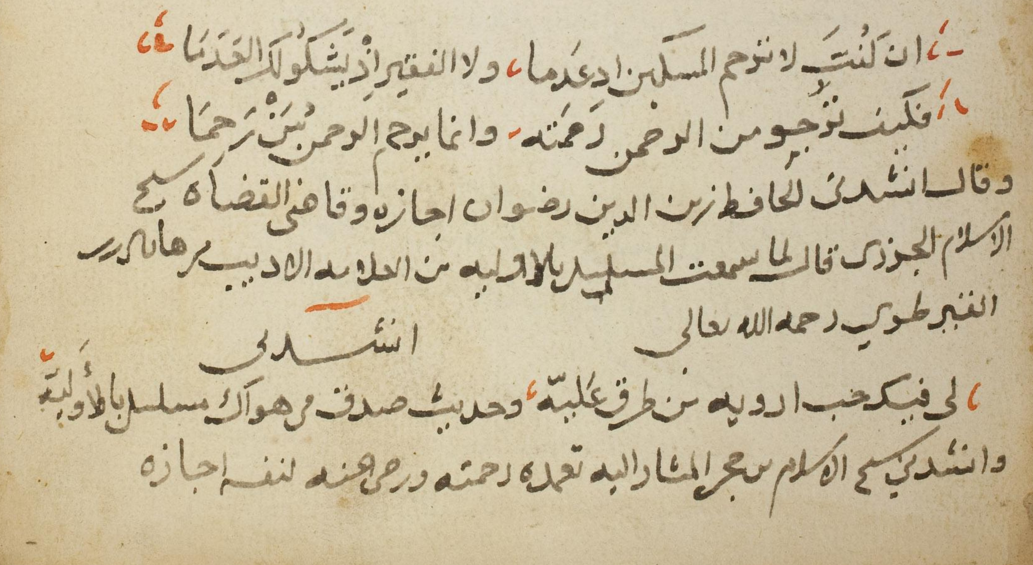 ان كُنتَ لا ترحم المسكين اذ عَدِما ولا الفقير اذْ يَشكُو لَكَ العَدَمَا
فكيف ترجو من الرحمن رحمته وانما يرحم الرحمن مَنْ رَحِمَا
وقال انشدني الحافظ زين الدين رضوان اجازه وقاضي القضاه شيخ
الاسلام الجزري قال لما سمعت المسلسل بالاوليه من العلامه الاديب برهان الدين
القيراطي رحمه الله تعالى انشدني
لي فيك حب ارويه من طرق عَليّه وحديث صدق من هواك مسلسل بالأَوليَّة
وانشدني شيخ الاسلام بن حجر المشار اليه تغمده رحمته ورضي عنه لنفسه اجازه